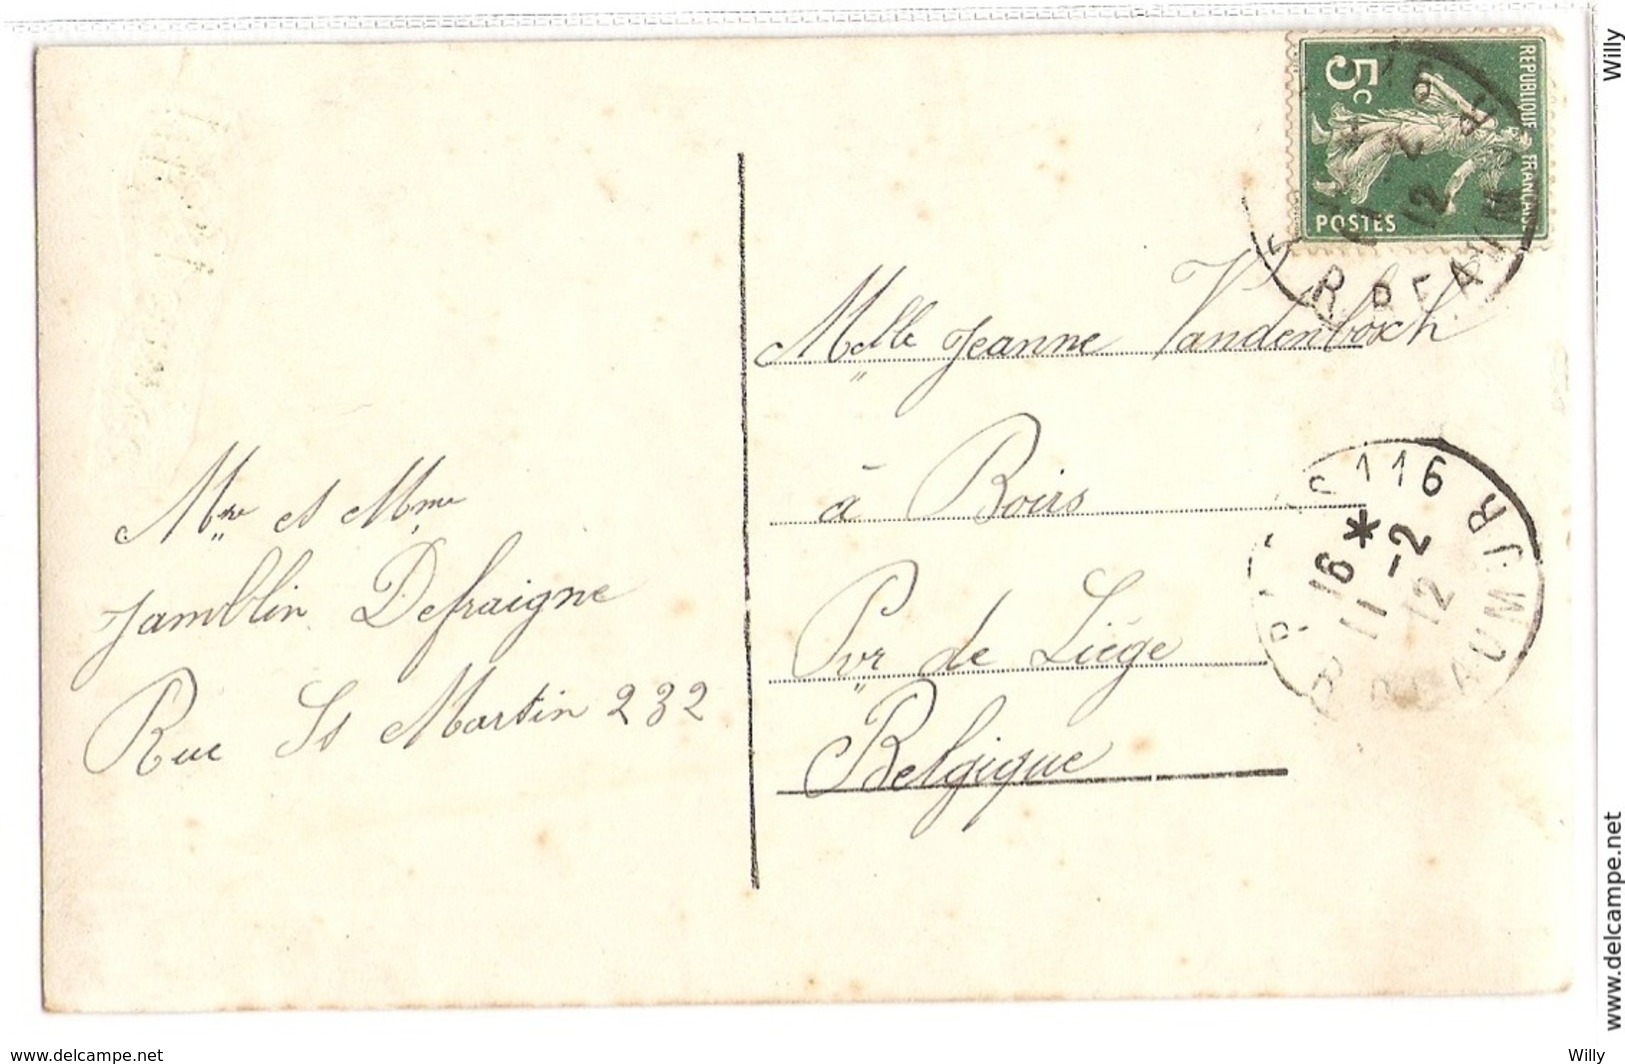 Mr et Mme
Jamblin Defraigne
Rue St Martin 232
REPUBLIQUE FRANÇAISE
5c
POSTES
Melle Jeanne Vandenbosch
à Roirs
Pvr de Liége
Belgique
116
16 *
11 -2
12
R. REAUMUR
Willy
www.delcampe.net
www.delcampe.net
Willy